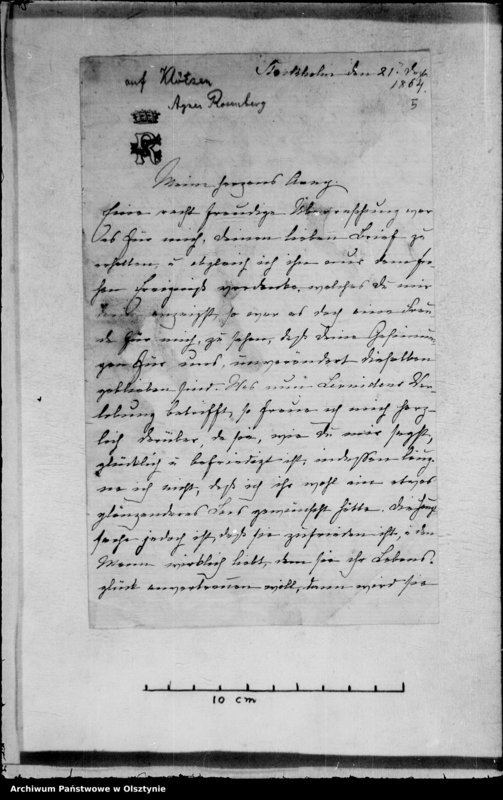 Stockholm den 21. Dez.
auf Klötzen
1864.
Agnes Rosenberg
5
R
Meine herzens Anny.
Eine recht freudige Überraschung war
es für mich, Deinen lieben Brief zu
erhalten, u obgleich ich ihn nur dem fro-
hen Ereigniß verdanke, welches Du mir
anzeigst, so war es doch eine Freu-
de für mich, zu sehen, daß Deine Gesinnun-
gen für uns, unverändert dieselben
geblieben sind. Was nun Ver-
lobung betrifft, so freue ich mich herz-
lich darüber, da sie, wie Du mir sagst,
glücklich u befriedigt ist, indessen läug-
ne ich nicht, daß ich ihr wohl ein etwas
glänzenderes Loos gewünscht hätte. Die Haupt
sache jedoch ist, daß sie zufrieden ist, u den
Mann wirklich liebt, dem sie ihr Lebens-
glück anvertrauen will, dann wird sie
10 cm
Archiwum Państwowe w Olsztynie